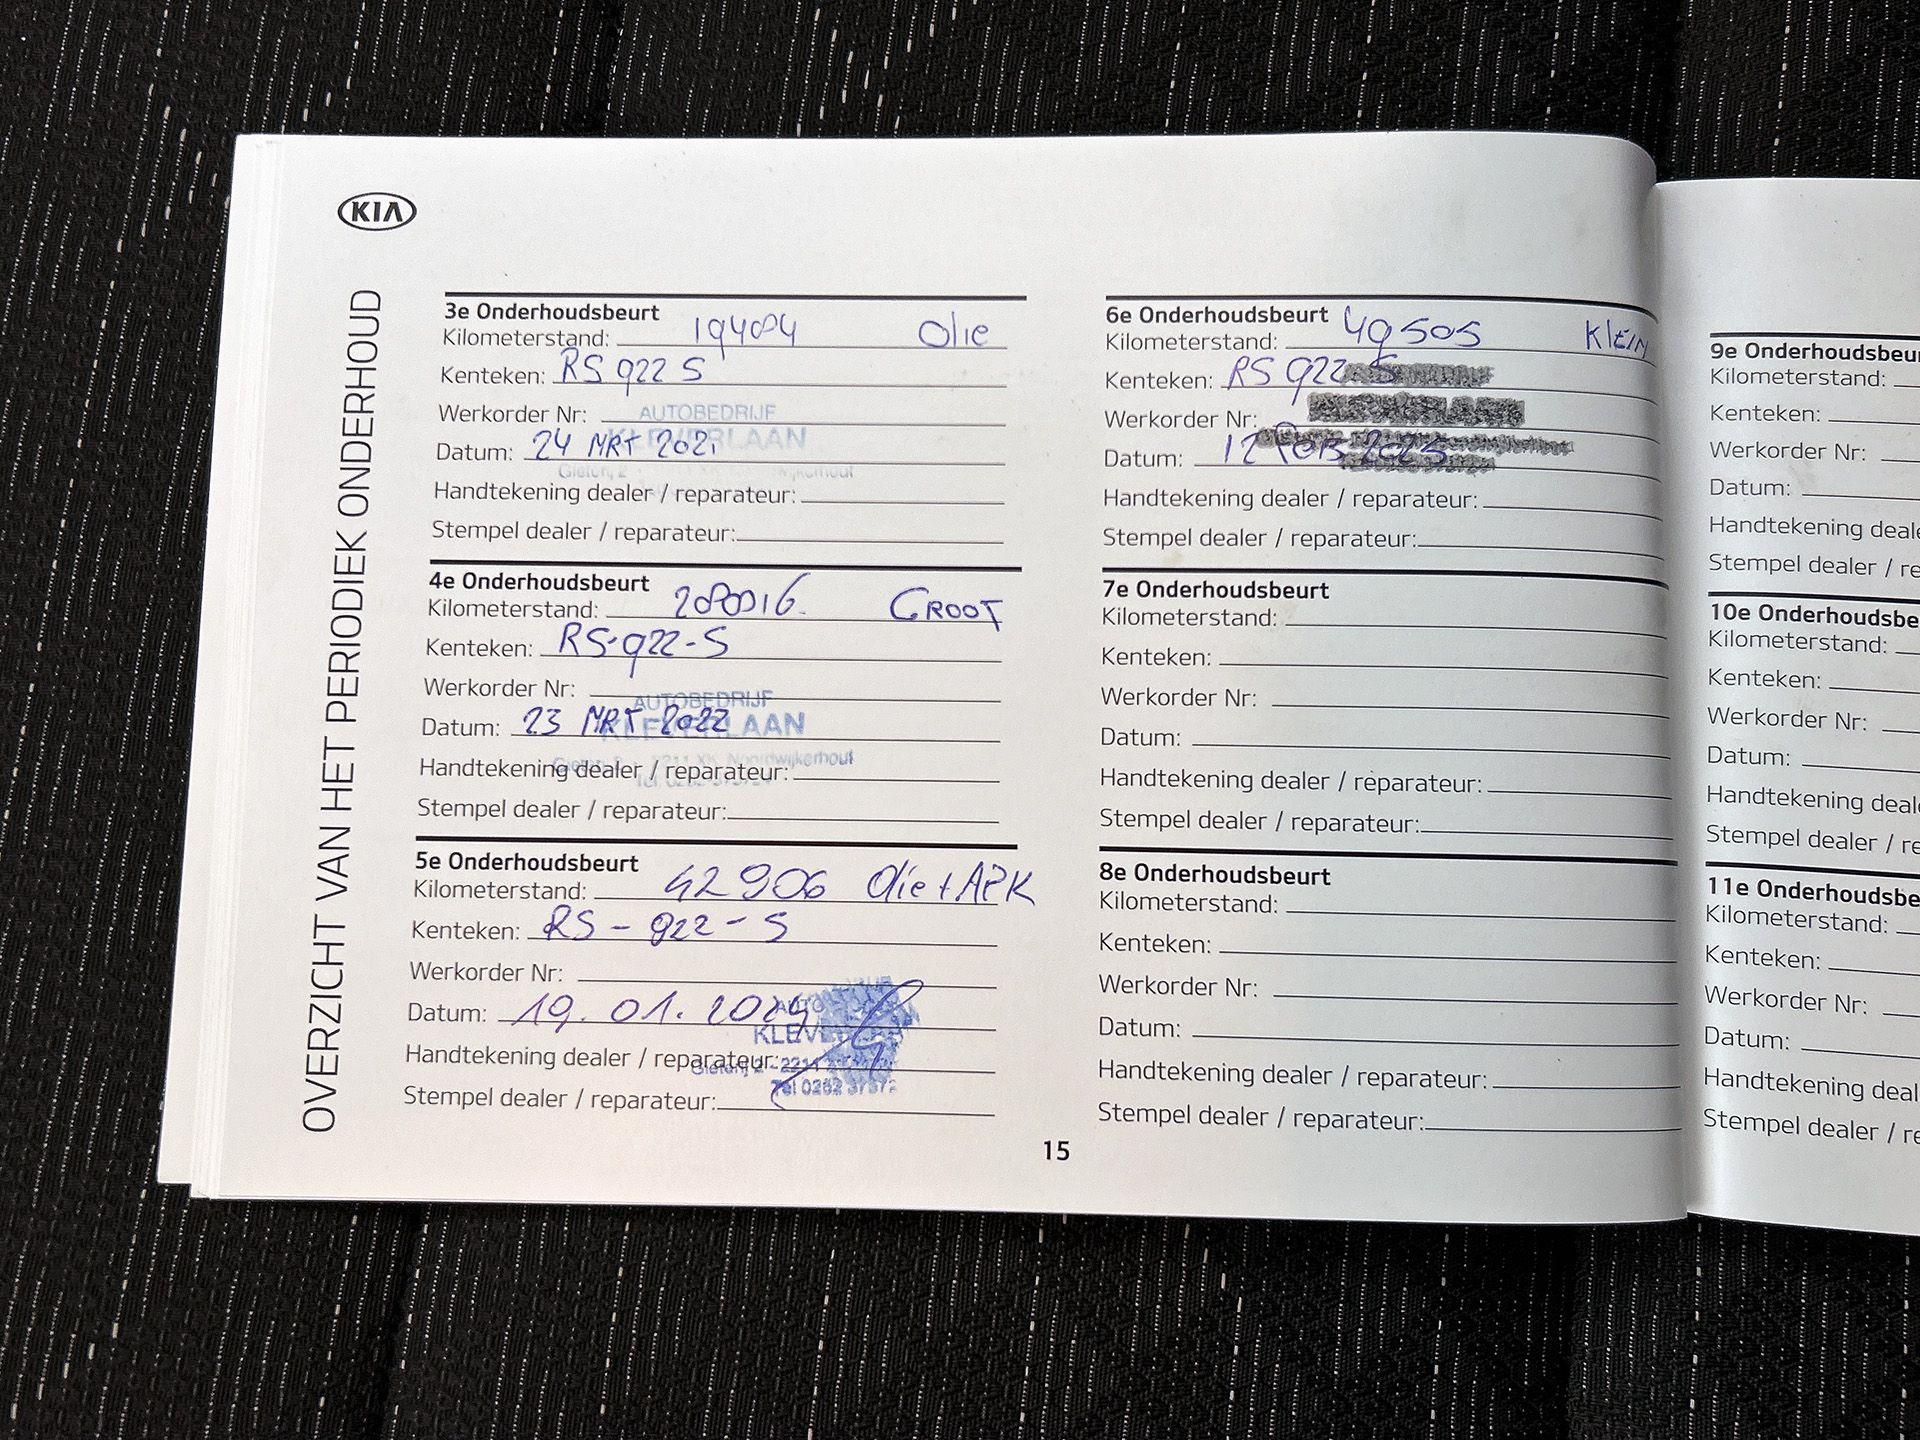 KIA
OVERZICHT VAN HET PERIODIEK ONDERHOUD
3e Onderhoudsbeurt
Kilometerstand: Olie
Kenteken: RS 922 S
Werkorder Nr:
AUTOBEDRIJF
KLEVERLAAN
Datum: 24 MRT 2021
Handtekening dealer / reparateur:
Stempel dealer / reparateur:
4e Onderhoudsbeurt
Kilometerstand: GROOT
Kenteken: RS-922-S
Werkorder Nr:
AUTOBEDRIJF
KLEVERLAAN
Datum: 23 MRT 2022
Noordwijkerhout
Handtekening dealer / reparateur:
Stempel dealer / reparateur:
5e Onderhoudsbeurt
Kilometerstand: 42906 Olie + APK
Kenteken: RS - 922 - S
Werkorder Nr:
Datum: 19.01.2024
Handtekening dealer / reparateur:
Stempel dealer / reparateur:
6e Onderhoudsbeurt
Kilometerstand: 49505 KLEIN
Kenteken: RS 922 S
Werkorder Nr:
Datum: 12 FEB 2025
Handtekening dealer / reparateur:
Stempel dealer / reparateur:
7e Onderhoudsbeurt
Kilometerstand:
Kenteken:
Werkorder Nr:
Datum:
Handtekening dealer / reparateur:
Stempel dealer / reparateur:
8e Onderhoudsbeurt
Kilometerstand:
Kenteken:
Werkorder Nr:
Datum:
Handtekening dealer / reparateur:
Stempel dealer / reparateur:
15
9e Onderhoudsbeur
Kilometerstand:
Kenteken:
Werkorder Nr:
Datum:
Handtekening deale
Stempel dealer / re
10e Onderhoudsbe
Kilometerstand:
Kenteken:
Werkorder Nr:
Datum:
Handtekening deal
Stempel dealer / re
11e Onderhoudsbe
Kilometerstand:
Kenteken:
Werkorder Nr:
Datum:
Handtekening deal
Stempel dealer / re